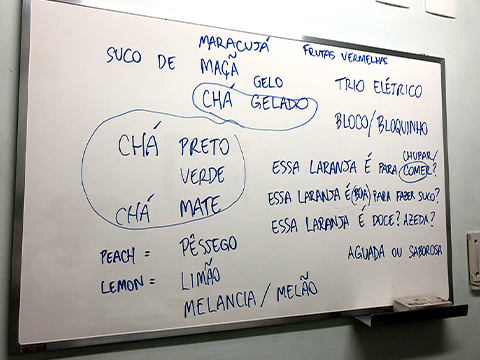 MARACUJÁ
SUCO DE MAÇÃ
FRUTAS VERMELHAS
GELO
CHÁ GELADO
CHÁ PRETO
VERDE
CHÁ MATE
PEACH = PÊSSEGO
LEMON = LIMÃO
MELANCIA / MELÃO
TRIO ELÉTRICO
BLOCO / BLOQUINHO
CHUPAR/
ESSA LARANJA É PARA COMER?
ESSA LARANJA É BOA PARA FAZER SUCO?
ESSA LARANJA É DOCE? AZEDA?
AGUADA OU SABOROSA